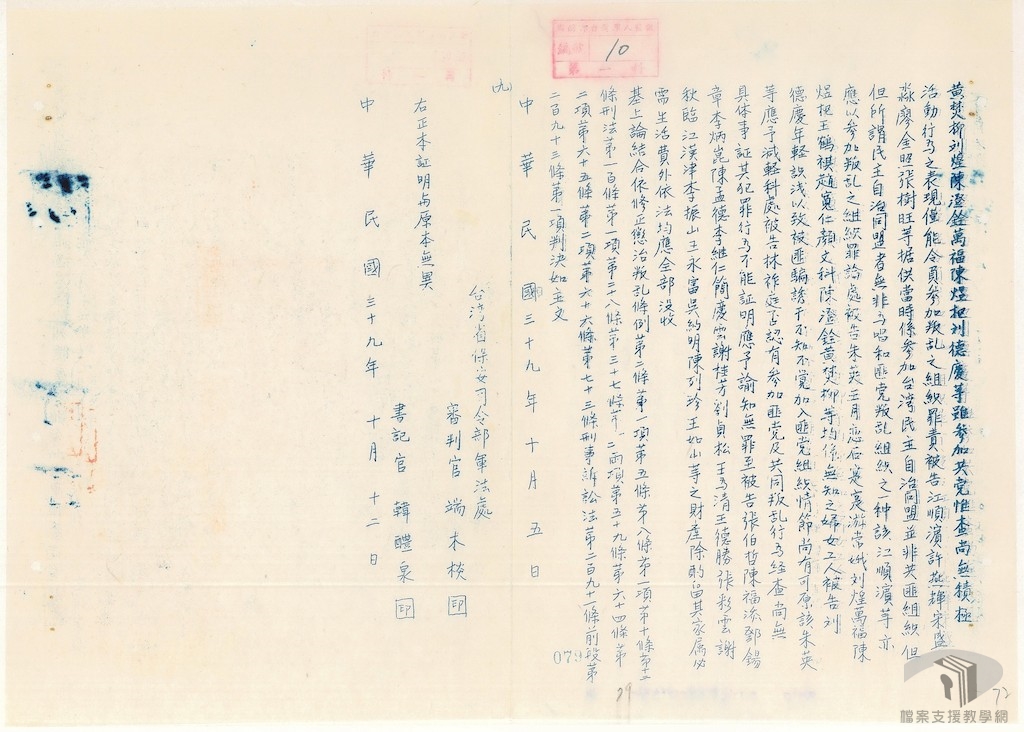 黃焚柳刘煌陳澄銓萬福陳煜杷刘德慶等雖參加共党惟查尚無積極
活動行为之表現僅能令負參加叛乱之組織罪責被告江順濱許燕輝宋盛
淼廖金照張樹旺等据供當時係參加台湾民主自治同盟並非共匪組織但
但所謂民主自治同盟者無非为唱和匪党叛乱組織之一种該江順濱等亦
應以參加叛乱之組織罪論處被告朱英王月恋石寔寔游常娥刘煌萬福陳
煜杷王鶴祺趙寬仁顏文科陳澄銓黃焚柳等均係無知之婦女工人被告刘
德慶年軽識浅以致被匪騙誘于不知不覚加入匪党組織情節尚有可原該朱英
等應予減軽科處被告林祚庭否認有參加匪党及共同叛乱行为経查尚無
具体事証其犯罪行为不能証明應予諭知無罪至被告張伯哲陳福添鄧錫
章李炳崑陳孟德李継仁簡慶雲謝桂芳刘貞松王为清王德勝張彩雲謝
秋臨江漢津李振山王永富吳約明陳列珍王如山等之財產除酌留其家属必
需生活費外依法均應全部沒收
基上論結合依修正懲治叛乱條例第二條第一項第五條第八條第一項第十條第十二
條刑法第一百條第一項第二十八條第三十七條第一二兩項第五十九條第六十四條第
二項第六十五條第二項第六十六條第七十三條刑事訴訟法第二百九十一條前段第
二百九十三條第一項判決如主文
中華民國三十九年十月五日
台湾省保安司令部軍法處
審判官 端木棪 印
書記官 韓醴泉 印
右正本証明与原本無異
中華民國三十九年十月十二日
10
第一科
079
29
72
檔案支援教學網